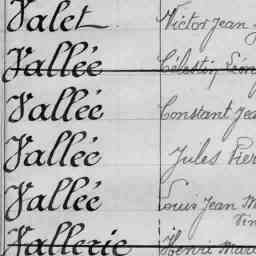 Valet Victor Jean
Vallée Célestin Léon
Vallée Constant Jea
Vallée Jules Pier
Vallée Louis Jean M
Vin
Vallerie Henri Mar